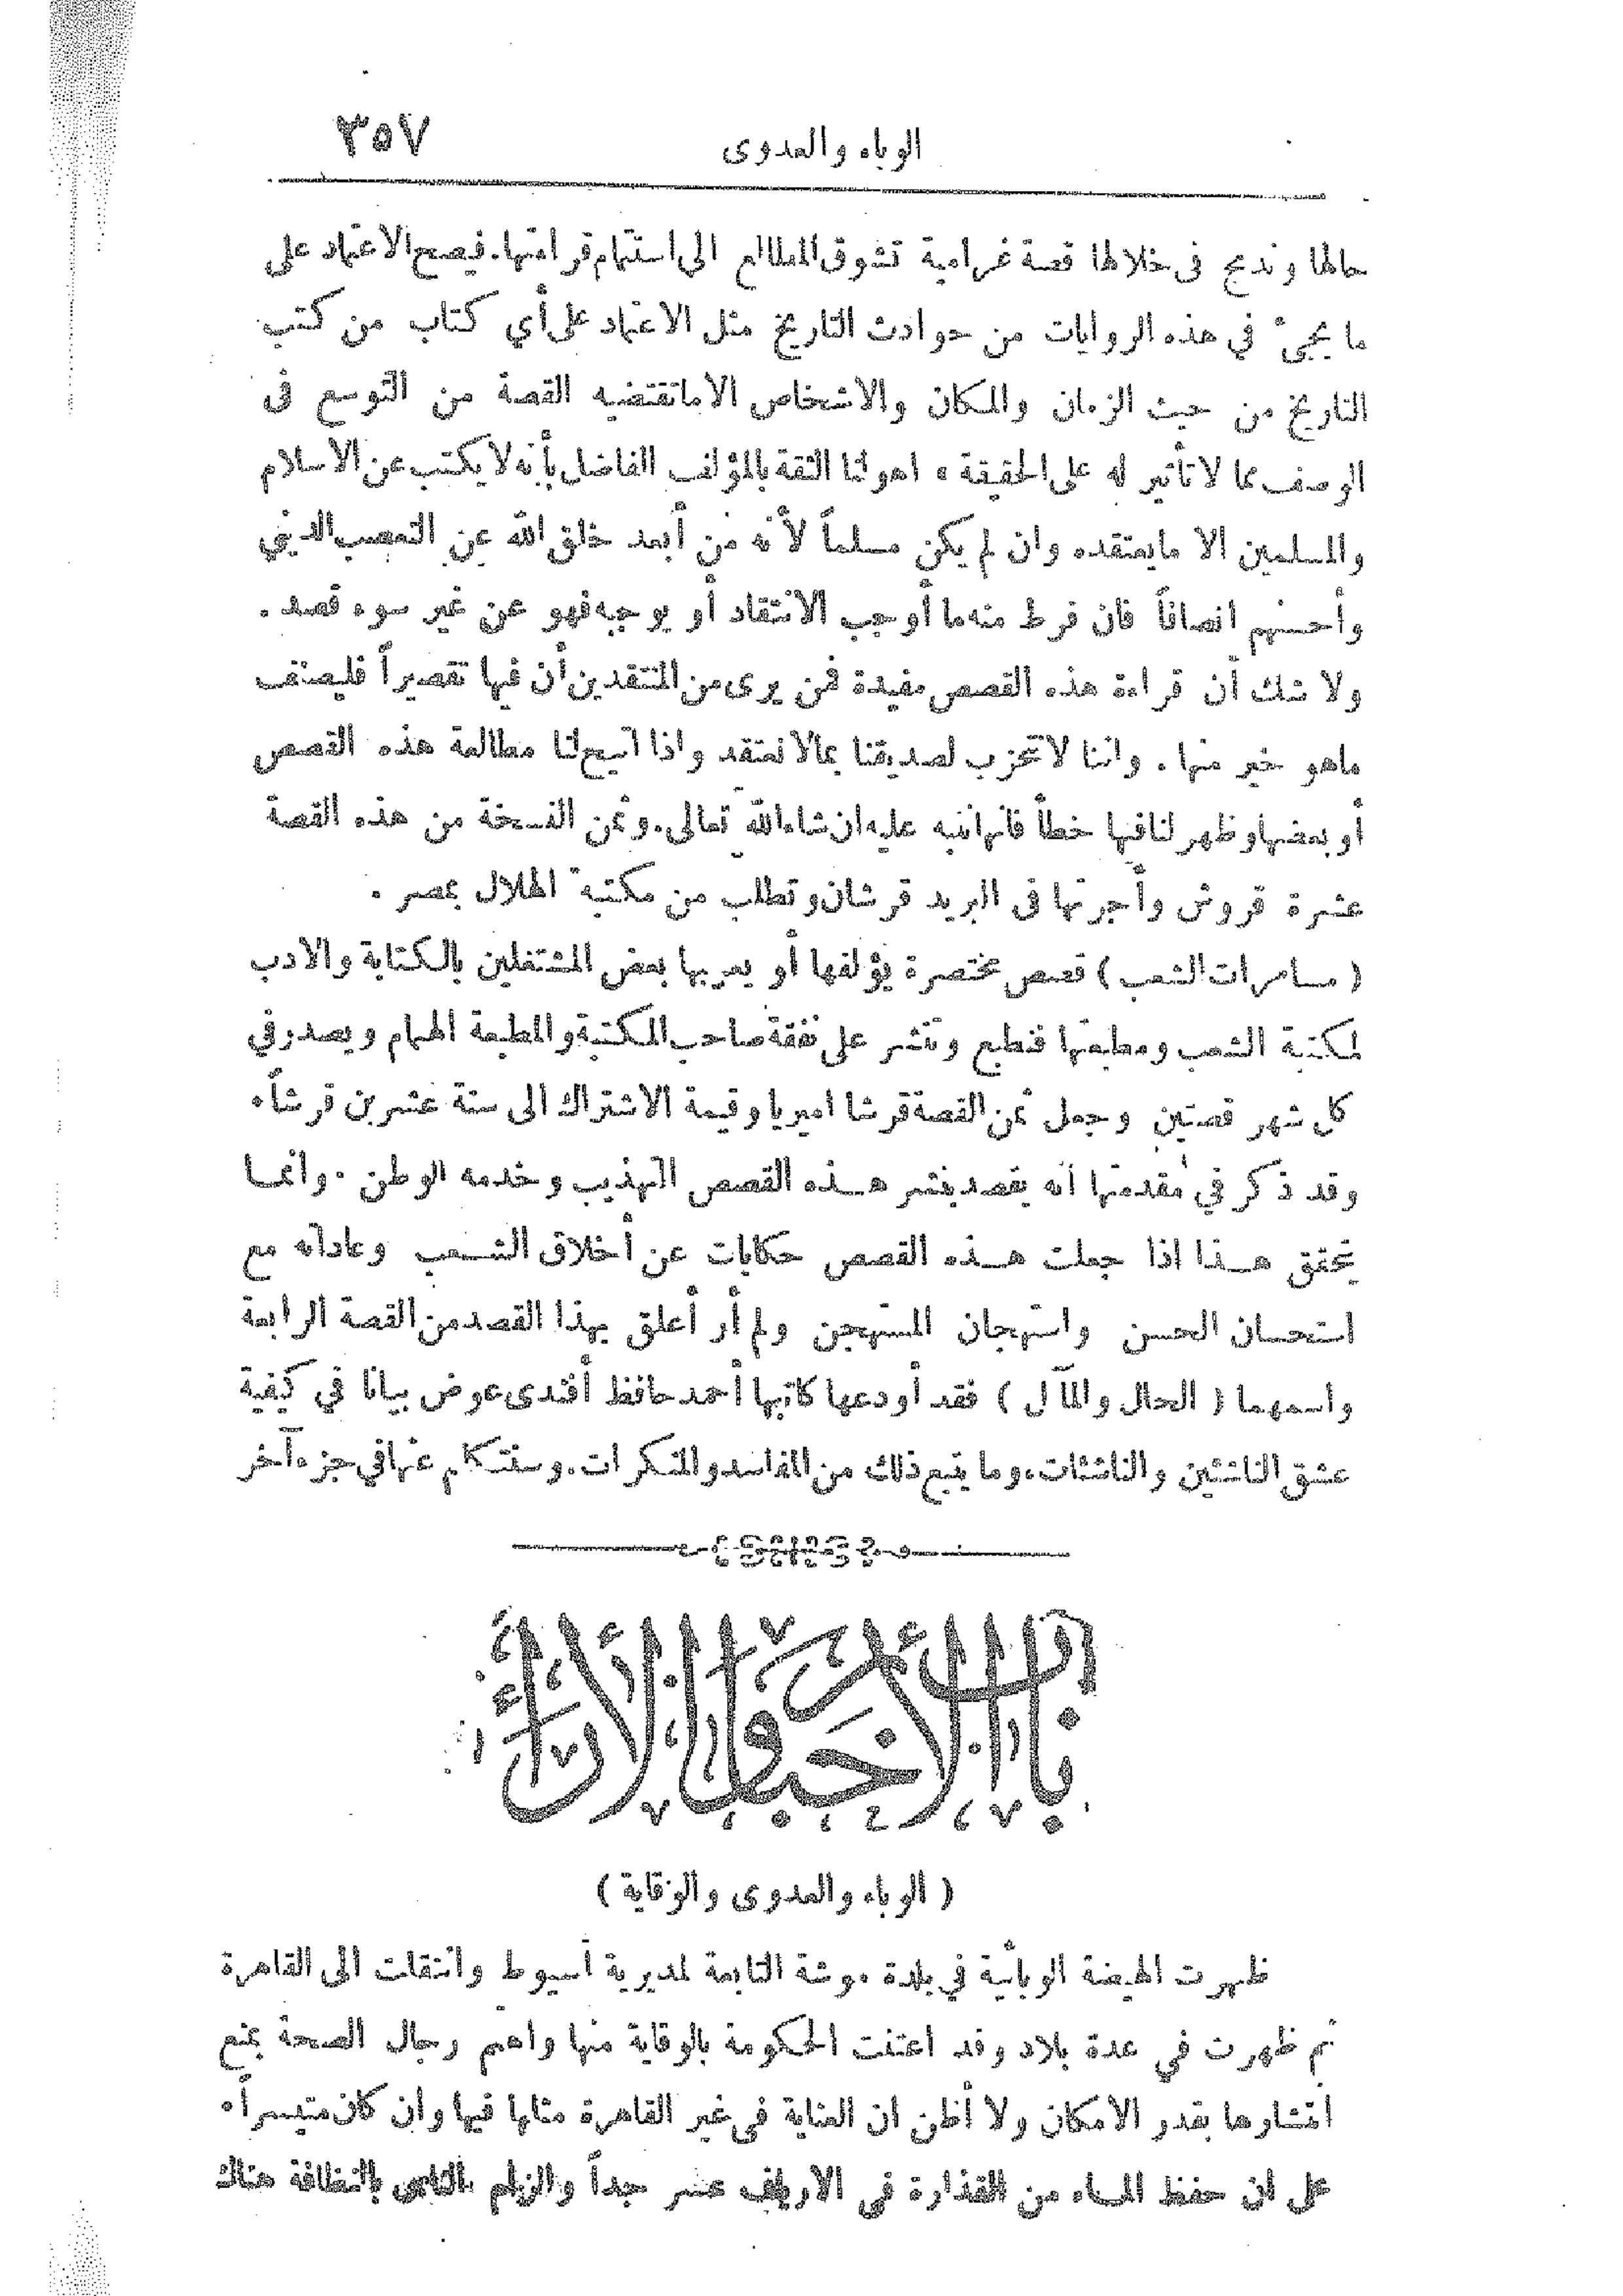 الوباء والعدوى
٣٥٧
حالها وندمج فى خلالها قصة غرامية تشوق المطالع الى استتمام قراءتها. فيصح الاعتماد على
ما يجيء في هذه الروايات من حوادث التاريخ مثل الاعتماد على أي كتاب من كتب
التاريخ من حيث الزمان والمكان والاشخاص الا ماتقتضيه القصة من التوسع فى
الوصف مما لا تأثير له على الحقيقة ، اهو لنا الثقة بالمؤلف الفاضل بأنه لا يكتب عن الاسلام
والمسلمين الا مايعتقده وان لم يكن مسلماً لأنه من أبعد خلق الله عن التعصب الديني
وأحسنهم انصافاً فان فرط منه ما أوجب الانتقاد أو يوجبه فهو عن غير سوء قصد .
ولا شك أن قراءة هذه القصص مفيدة فمن يرى من المنتقدين أن فيها تقصيراً فليصنف
ماهو خير منها . واننا لا نتحزب لصديقنا بما لا نعتقد واذا اتيح لنا مطالعة هذه القصص
أو بعضها وظهر لنا فيها خطأ فاننا ننبه عليه ان شاء الله تعالى. وثمن النسخة من هذه القصة
عشرة قروش وأجرتها فى البريد قرشان وتطلب من مكتبة الهلال بمصر .
( مسامرات الشعب ) قصص مختصرة يؤلفها أو يعربها بعض المشتغلين بالكتابة والادب
لمكتبة الشعب ومطبعتها فتطبع وتنشر على نفقة صاحب المكتبة والمطبعة الهمام ويصدر في
كل شهر قصتين وجعل ثمن القصة قرشا اميريا وقيمة الاشتراك الى ستة عشرين قرشاً .
وقد ذكر في مقدمتها أنه يقصد بنشر هذه القصص التهذيب وخدمه الوطن . وانما
يتحقق هذا اذا جعلت هذه القصص حكايات عن أخلاق الشعب وعاداته مع
استحسان الحسن واستهجان المستهجن ولم أر أعلق بهذا القصد من القصة الرابعة
واسمهما ( الحال والمآل ) فقد أودعها كاتبها أحمد حافظ أفندى عوض بيانا في كيفية
عشق الناشئين والناشئات، وما يتبع ذلك من المفاسد والمنكرات. وسنتكلم عنها في جزء آخر
باب الاخبار والآراء
( الوباء والعدوى والوقاية )
ظهرت الهيضة الوبائية في بلدة موشة التابعة لمديرية أسيوط وانتقلت الى القاهرة
ثم ظهرت في عدة بلاد وقد اعتنت الحكومة بالوقاية منها واهتم رجال الصحة بمنع
انتشارها بقدر الامكان ولا أظن ان العناية فى غير القاهرة مثلها فيها وان كان متيسراً .
على ان حفظ الماء من القذارة في الارياف عسر جداً والزام الناس بالنظافة هناك